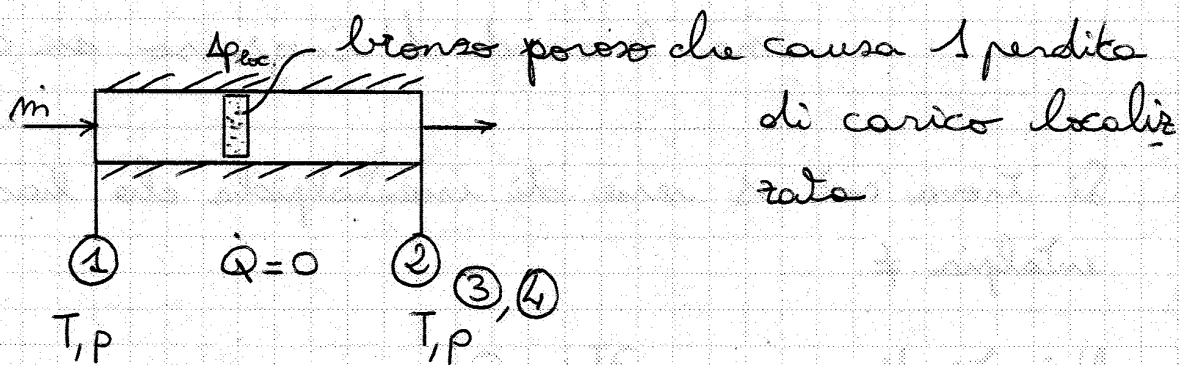 Δp loc. bronzo poroso che causa 1 perdita
ṁ di carico localiz
zata
1 Q̇=0 2 3, 4
T, p T, p